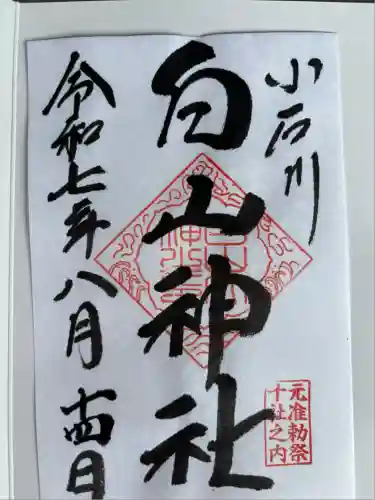 小石川
白山神社
令和七年八月十四日
元准勅祭
十社之内